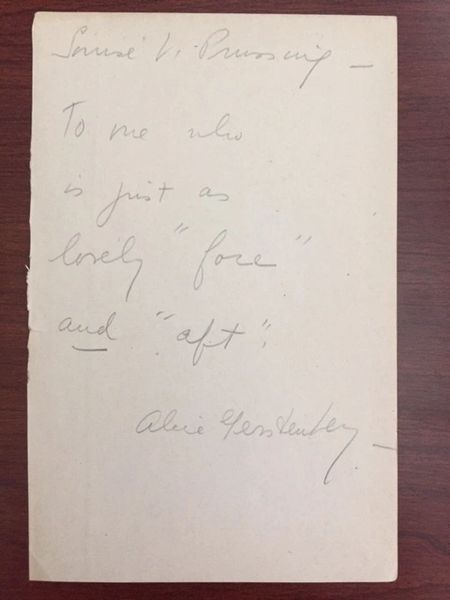 Louise V. Prussing —
To one who
is just as
lovely "fore"
and "aft".
Alice Gerstenberg —